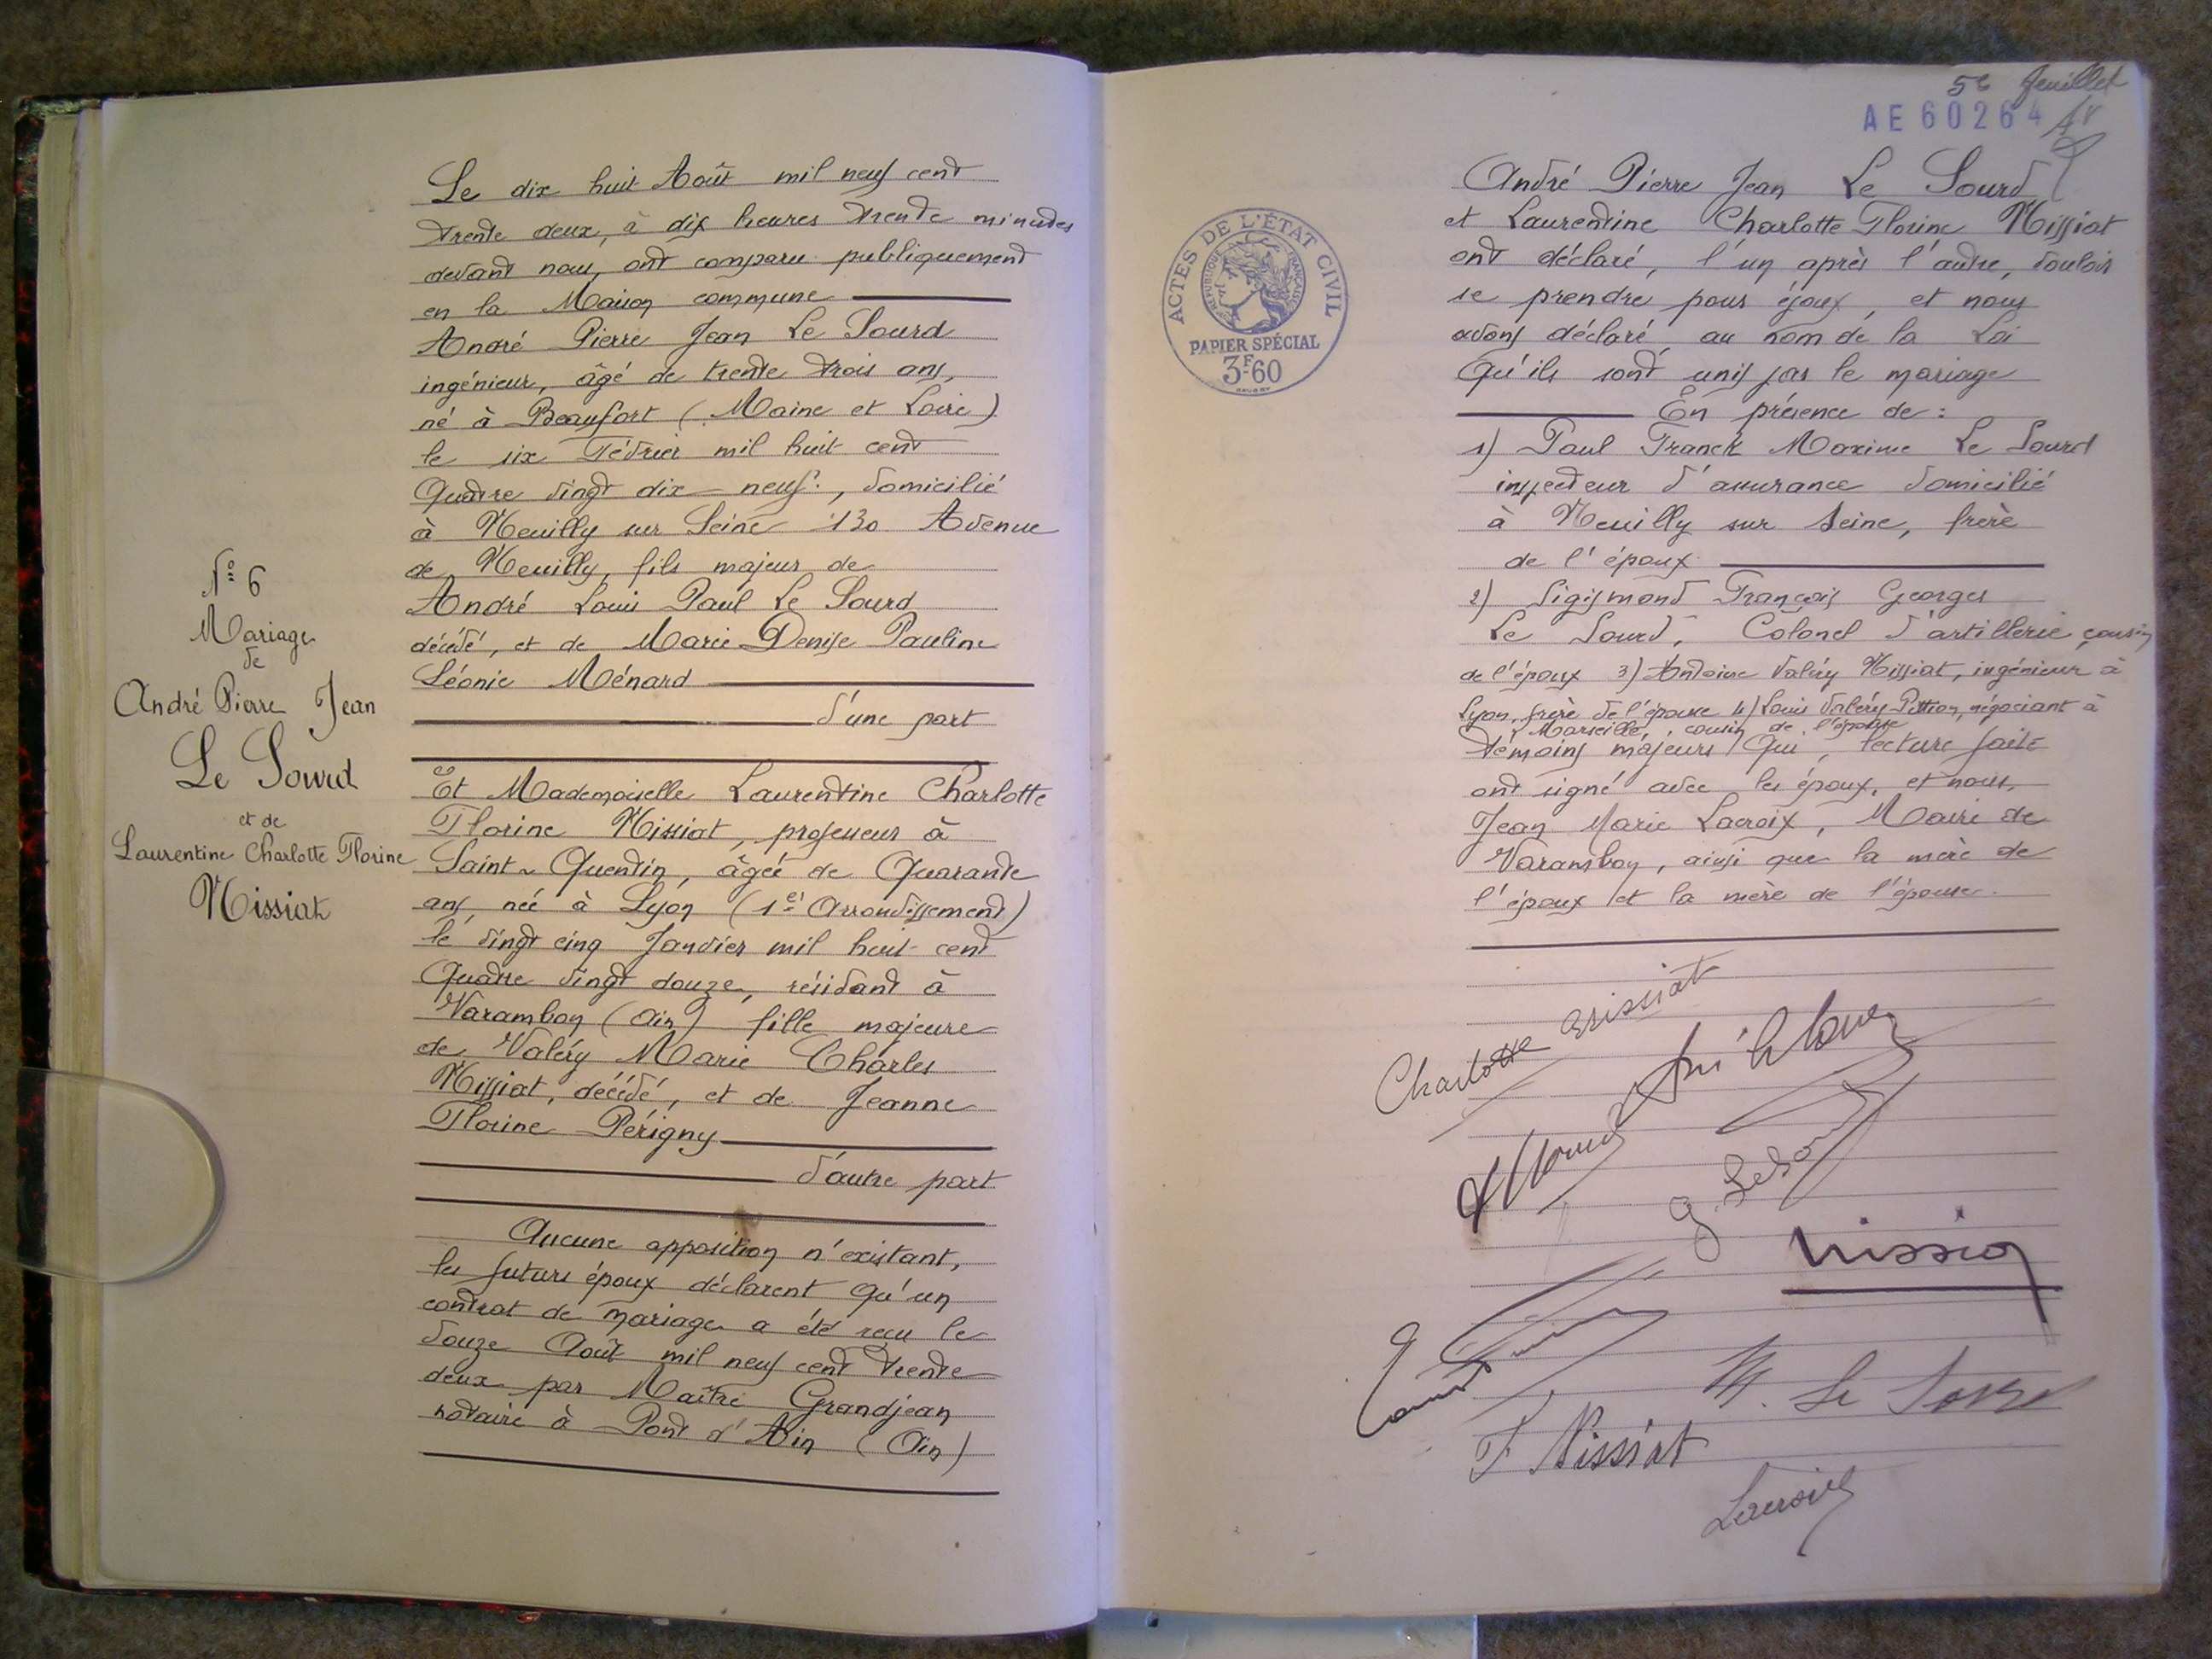 Nº 6
Mariage
de
André Pierre Jean
Le Sourd
et de
Laurentine Charlotte Florine
Nissiat
Le dix huit Août mil neuf cent
trente deux, à dix heures trente minutes
devant nous, ont comparu publiquement
en la Maison commune
André Pierre Jean Le Sourd
ingénieur, âgé de trente trois ans,
né à Beaufort (Maine et Loire)
le six Février mil huit cent
Quatre vingt dix-neuf, domicilié
à Neuilly sur Seine 130 Avenue
de Neuilly, fils majeur de
André Louis Paul Le Sourd
décédé, et de Marie Denise Pauline
Léonie Ménard
d'une part
Et Mademoiselle Laurentine Charlotte
Florine Nissiat, professeur à
Saint-Quentin, âgée de Quarante
ans, née à Lyon (1er Arrondissement)
le vingt cinq Janvier mil huit cent
Quatre vingt douze, résidant à
Varambon (Ain) fille majeure
de Valéry Marie Charles
Nissiat, décédé, et de Jeanne
Florine Périgny
d'autre part
Aucune opposition n'existant,
les futurs époux déclarent qu'un
contrat de mariage a été reçu le
douze Août mil neuf cent trente
deux par Maître Grandjean
notaire à Pont d'Ain (Ain)
5e feuillet
AE 60264
ACTES DE L'ÉTAT CIVIL
RÉPUBLIQUE FRANÇAISE
PAPIER SPÉCIAL
3F60
André Pierre Jean Le Sourd
et Laurentine Charlotte Florine Nissiat
ont déclaré, l'un après l'autre, vouloir
se prendre pour époux, et nous
avons déclaré, au nom de la Loi
Qu'ils sont unis par le mariage
En présence de :
1) Paul Franck Maxime Le Sourd
inspecteur d'assurance domicilié
à Neuilly sur Seine, frère
de l'époux
2) Sigismond François Georges
Le Sourd, Colonel d'artillerie, cousin
de l'époux 3) Antoine Valéry Nissiat, ingénieur à
Lyon, frère de l'épouse 4) Louis Valéry Pittion, négociant à
Marseille, cousin de l'épouse
témoins majeurs Qui, lecture faite
ont signé avec les époux, et nous,
Jean Marie Lacroix, Maire de
Varambon, ainsi que la mère de
l'époux et la mère de l'épouse.
Charlotte Nissiat
G. Le Sourd
Nissiat
M. Le Sourd
F. Nissiat
Lacroix